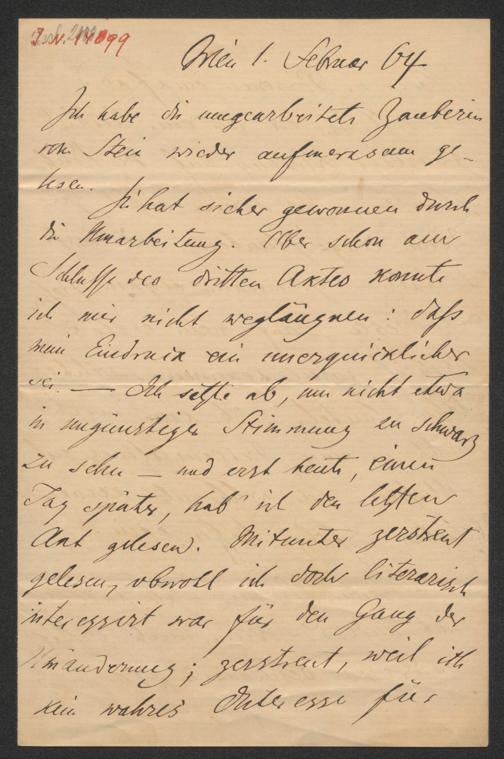 J. N. 17099
Wien 1. Februar 04
Ich habe die umgearbeitete Zauberin
vom Stein wieder aufmerksam ge-
lesen.
Sie hat sicher gewonnen durch
die Umarbeitung. Aber schon am
Schlusse des dritten Aktes konnte
ich mir nicht wegläugnen: daß
mein Eindruck ein unerquicklicher
sei. — Ich setzte ab, um nicht etwa
in ungünstiger Stimmung zu schwarz
zu sehen — und erst heute, einen
Tag später, hab' ich den letzten
Akt gelesen. Mitunter zerstreut
gelesen, obwohl ich doch literarisch
interessirt war für den Gang der
Umänderung; zerstreut, weil ich
kein wahres Interesse für